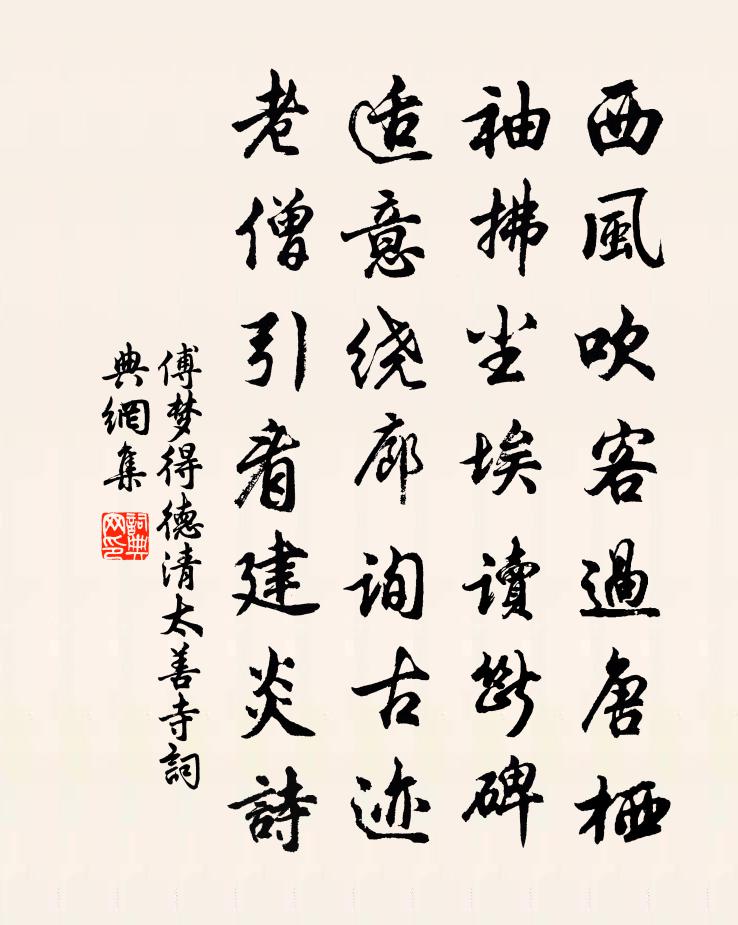 西風吹客過唐栖
袖拂尘埃讀斷碑
适意绕廊詢古迹
老僧引看建炎詩
傅梦得德清太善寺詞
典網集
詞典
网印